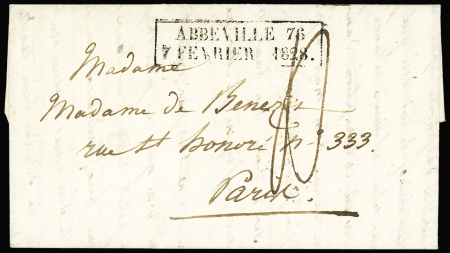 ABBEVILLE 76
7 FEVRIER 1828.
Madame
Madame de
rue St honoré n° 333.
Paris